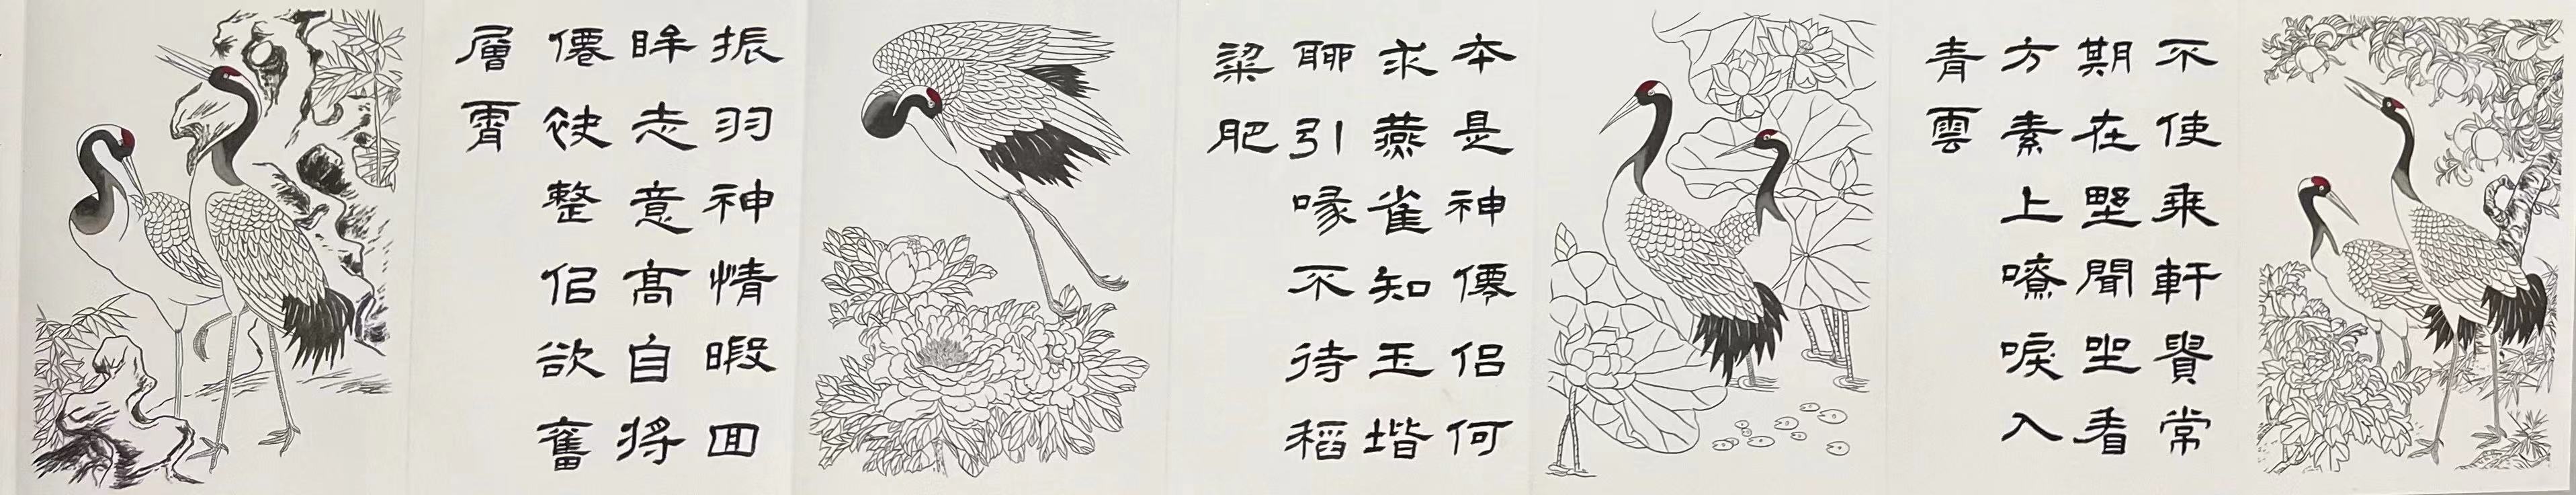 不使乘軒貴常
期在野聞坐看
方素上嘹唳入
青雲
本是神僊侶何
求燕雀知玉堦
聊引喙不待稻
粱肥
振羽神情暇回
眸志意高自將
僊袂整侶欲奮
層霄